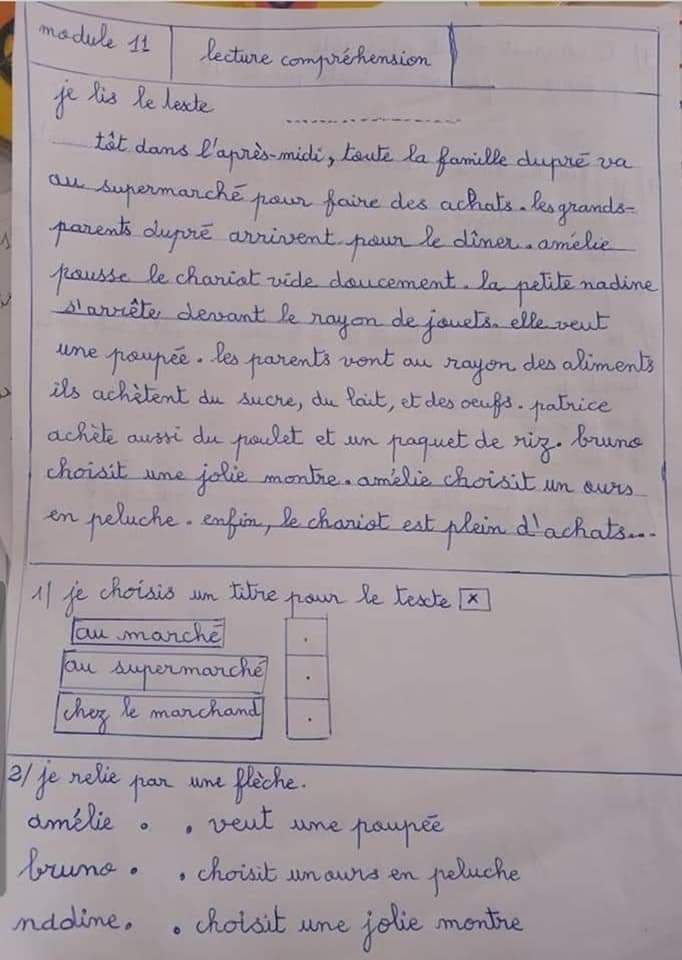 module 11
lecture compréhension
je lis le texte
tôt dans l'après-midi, toute la famille dupré va
au supermarché pour faire des achats. les grands-
parents dupré arrivent pour le dîner. amélie
pousse le chariot vide doucement. la petite nadine
s'arrête devant le rayon de jouets. elle veut
une poupée. les parents vont au rayon des aliments
ils achètent du sucre, du lait, et des oeufs. patrice
achète aussi du poulet et un paquet de riz. bruno
choisit une jolie montre. amélie choisit un ours
en peluche. enfin, le chariot est plein d'achats...
1) je choisis un titre pour le texte x
au marché .
au supermarché .
chez le marchand .
2/ je relie par une flèche.
amélie . . veut une poupée
bruno . . choisit un ours en peluche
nadine. . choisit une jolie montre